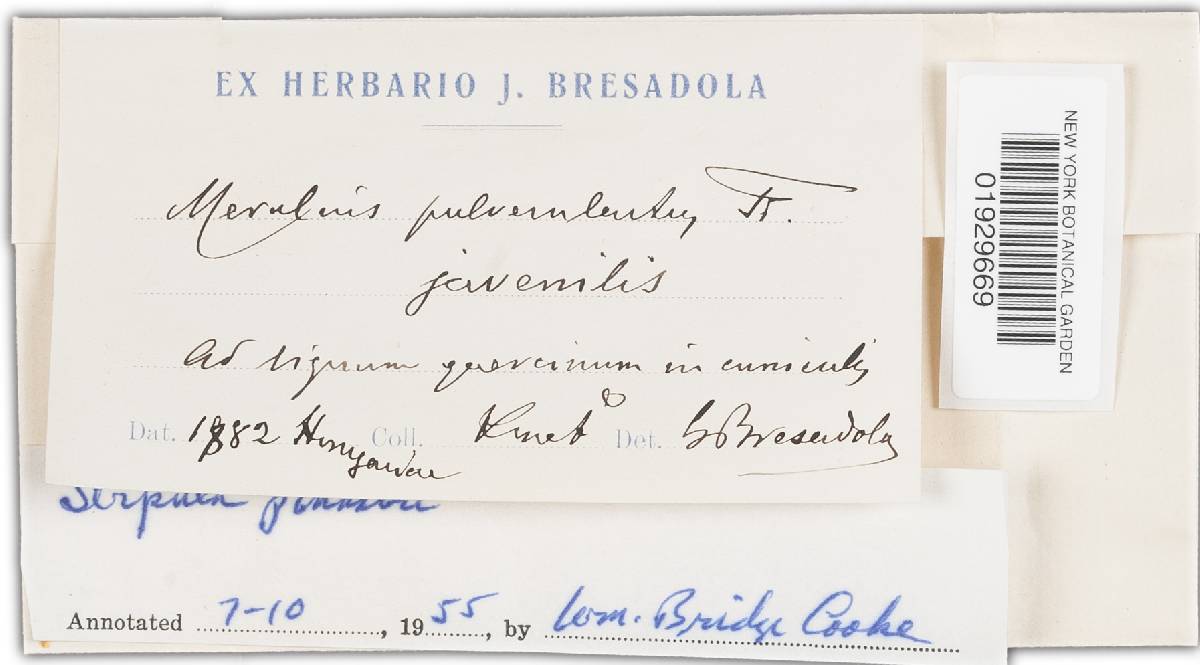 EX HERBARIO J. BRESADOLA
Merulius pulverulentus Fr.
juvenilis
Ad lignum quercinum in cuniculis
Dat. 1882 Hungariae Coll. Kmet Det. G Bresadola
Serpula
Annotated 7-10, 1955, by Wm. Bridge Cooke
NEW YORK BOTANICAL GARDEN
01929669